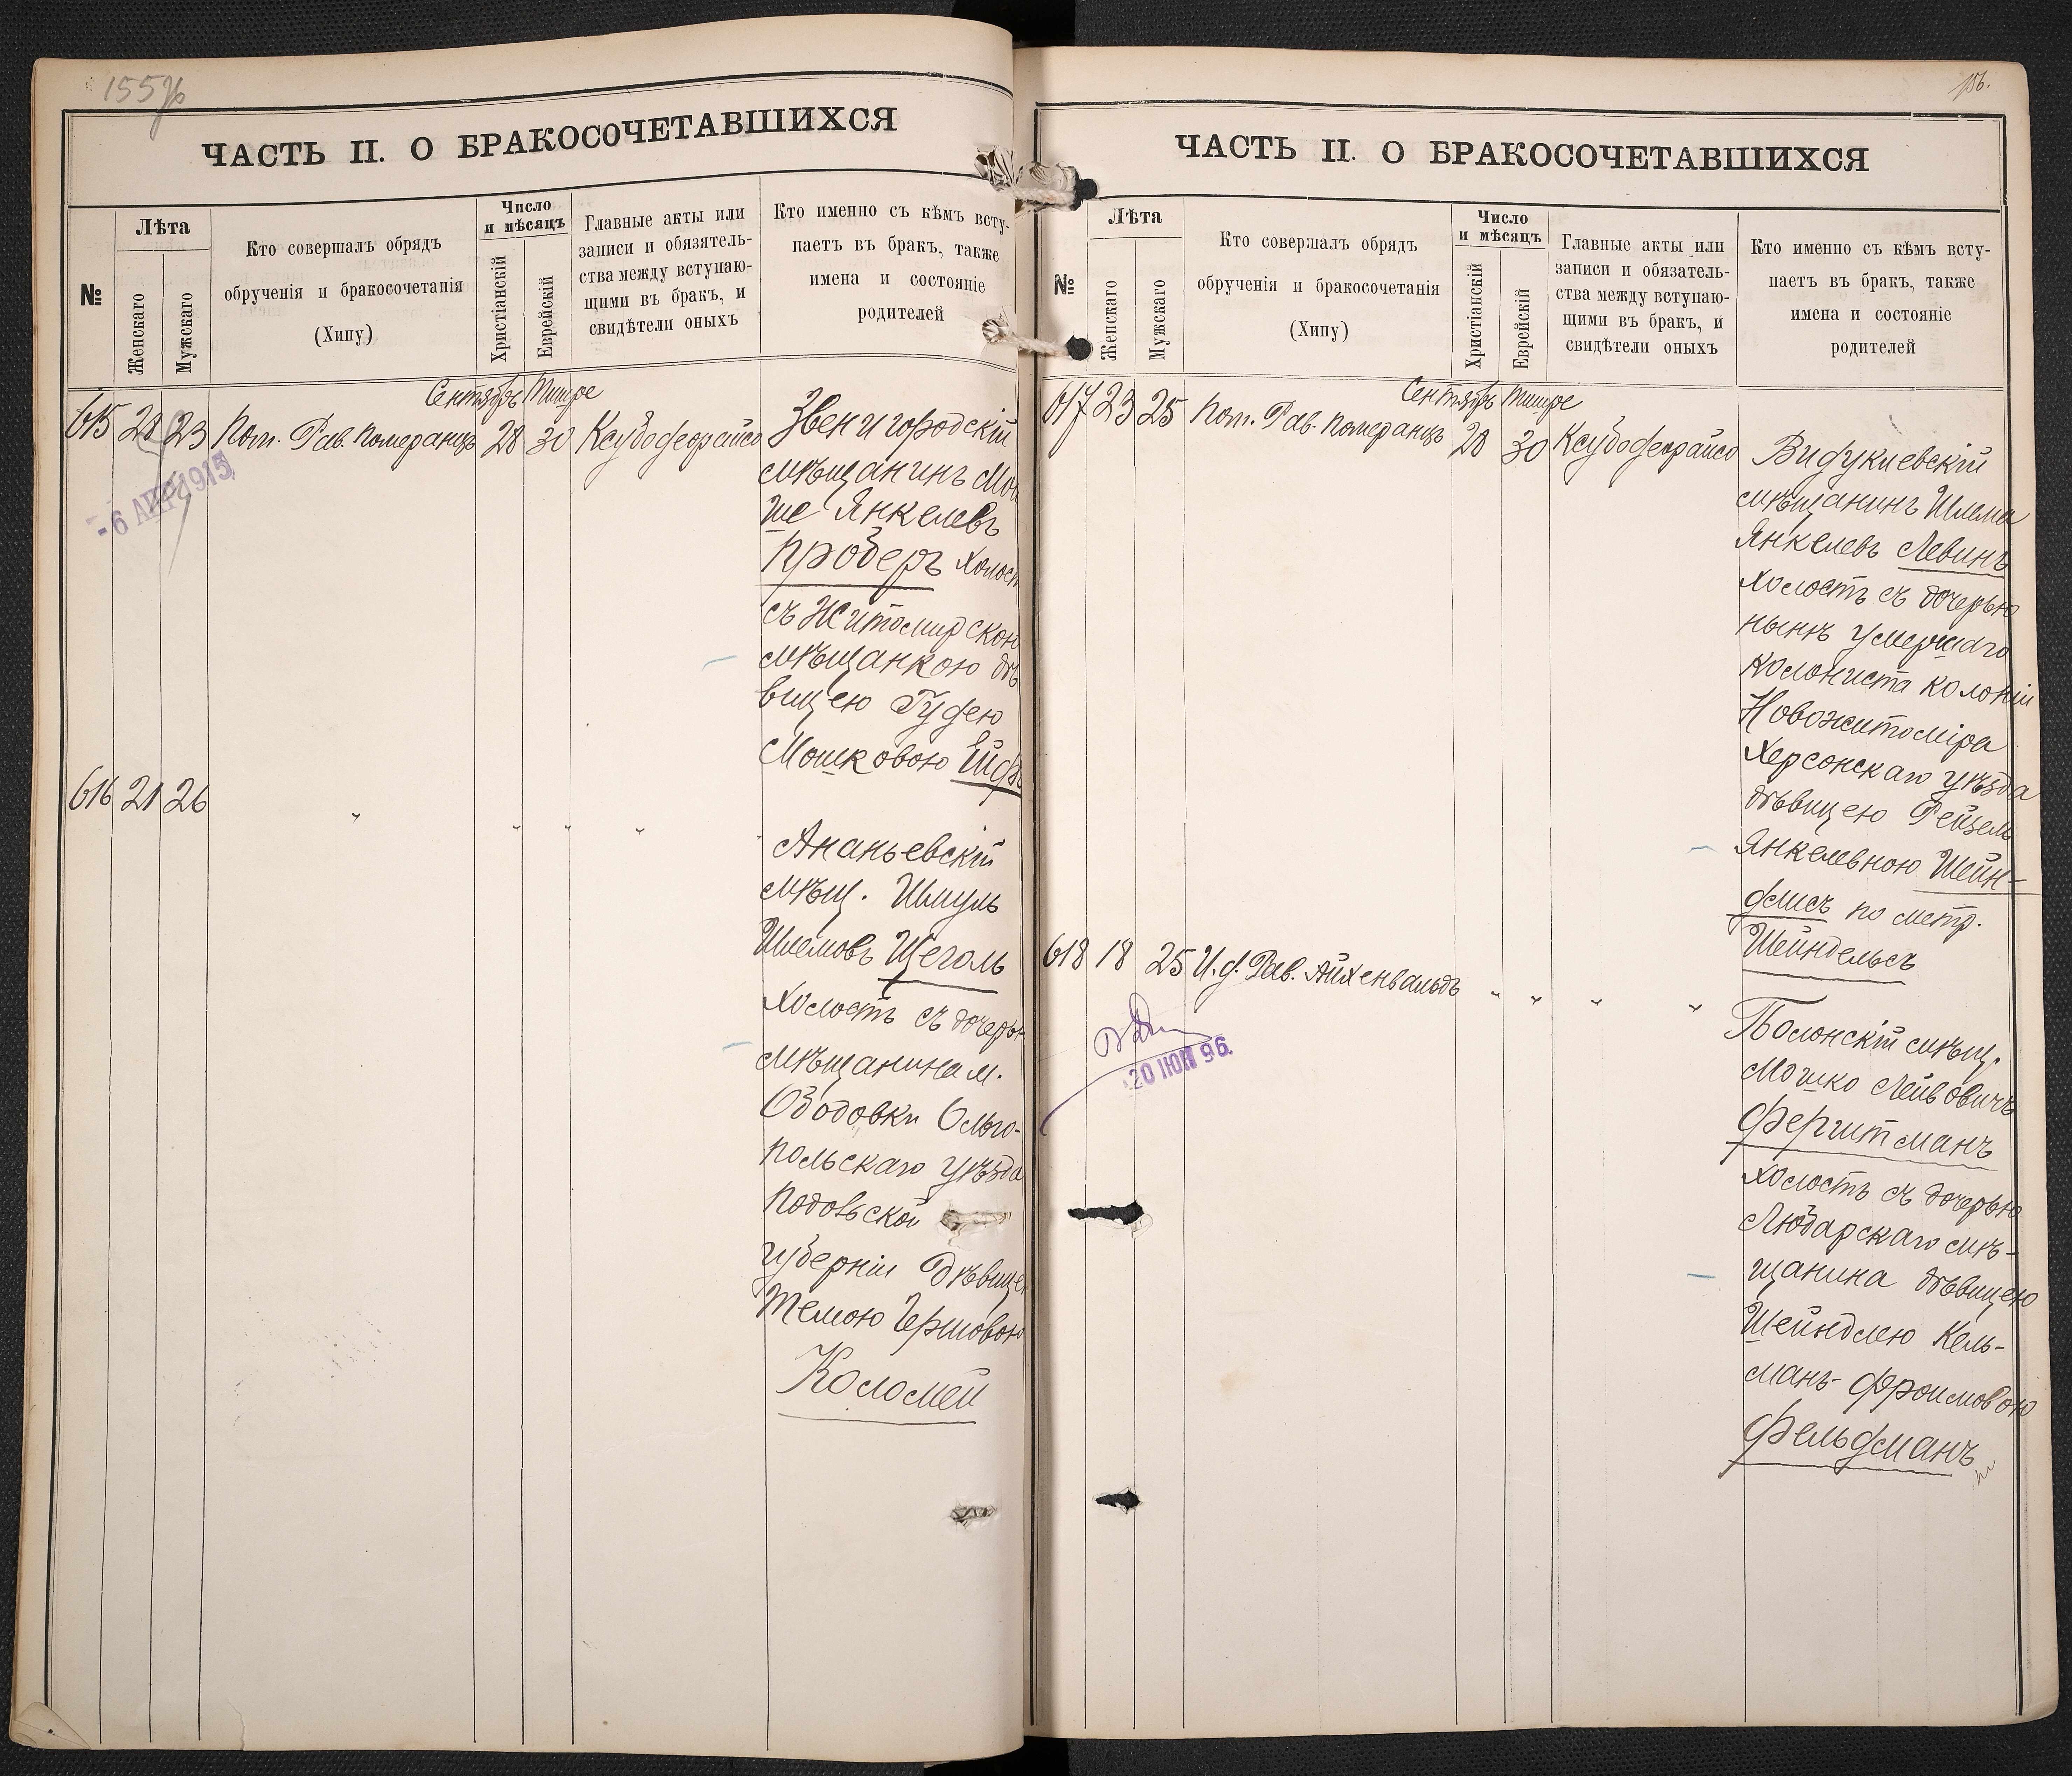 ЧАСТЬ II. О БРАКОСОЧЕТАВШИХСЯ
№
Лѣта
Женскаго
Мужскаго
Кто совершалъ обрядъ
обрученія и бракосочетанія
(Хипу)
Число
и мѣсяцъ
Христіанскій
Еврейскій
Главные акты или
записи и обязатель-
ства между вступаю-
щими въ бракъ, и
свидѣтели оныхъ
Кто именно съ кѣмъ всту-
паетъ въ бракъ, также
имена и состояніе
родителей
Сентябрь Тишре
615 28 23 Пом. Рав. Померанцъ 28 30
- 6 АПР 1915
Звенигородскій
мѣщанинъ
ше Янкелевъ
Проберъ холост
съ Житомирскою
мѣщанкою дѣ
вицею
Мошковою
616 21 26 " " " "
Ананьевскій
мѣщ. Шмуль
Шлемовъ Щеголь
холостъ съ дочерью
мѣщанина м.
Ободовки Ольго-
польскаго уѣзда
Подольской
губерніи дѣвицею
Гершовою
Коломей
156.
ЧАСТЬ II. О БРАКОСОЧЕТАВШИХСЯ
№
Лѣта
Женскаго
Мужскаго
Кто совершалъ обрядъ
обрученія и бракосочетанія
(Хипу)
Число
и мѣсяцъ
Христіанскій
Еврейскій
Главные акты или
записи и обязатель-
ства между вступаю-
щими въ бракъ, и
свидѣтели оныхъ
Кто именно съ кѣмъ всту-
паетъ въ бракъ, также
имена и состояніе
родителей
Сентябрь Тишре
617 23 25 Пом. Рав. Померанцъ 28 30
Видуклевскій
мѣщанинъ Шлема
Янкелевъ Левинъ
холостъ съ дочерью
нынѣ умершаго
колониста колоніи
Новожитоміра
Херсонскаго уѣзда
дѣвицею Рейзель
Янкелевною Шейн-
флисъ по метр.
Шейндельсъ
618 18 25 И. д. Рав. Айхенвальдъ " " " "
20 ИЮН 96.
Полонскій мѣщ.
Мошко Лейбовичъ
Ферштманъ
холостъ съ дочерью
Любарскаго мѣ-
щанина дѣвицею
Шейндлею Кель-
манъ-Фроимовою
Фельдманъ